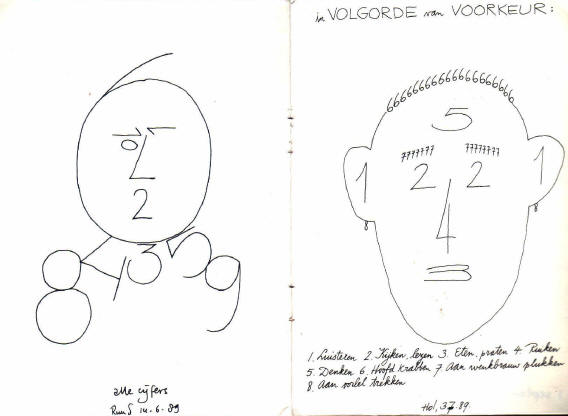 alle cijfers
14-6-89
in VOLGORDE van VOORKEUR:
5
7777777 7777777
1 2 2 1
8 8
4
3
1. Luisteren 2. Kijken, lezen 3. Eten, praten 4. Ruiken
5. Denken 6. Hoofd krabben 7 Aan wenkbrauw plukken
8. Aan oorlel trekken
Hol, 3-7-89